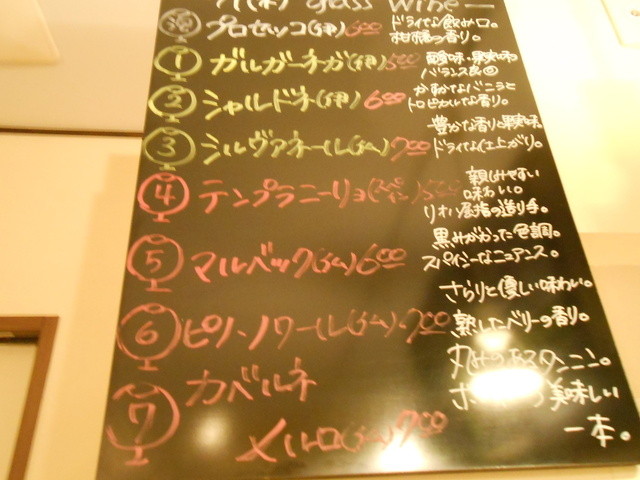 (木) glass wine
泡 プロセッコ(伊) 600 ドライな飲み口。
柑橘の香り。
1 ガルガーネガ(伊) 500 酸味・果実味
バランス良◎
2 シャルドネ(伊) 600 かすかなバニラと
トロピカルな香り。
3 シルヴァネール(仏) 700 豊かな香りと果実味。
ドライな仕上がり。
4 テンプラニーリョ(スペイン) 500 親しみやすい
味わい。
リオハ屈指の造り手。
5 マルベック(仏) 600 黒みがかった色調。
スパイシーなニュアンス。
6 ピノ・ノワール(仏) 700 さらりと優しい味わい。
熟したベリーの香り。
7 カベルネ
メルロ(仏) 700 タンニン。
美味しい
一本。